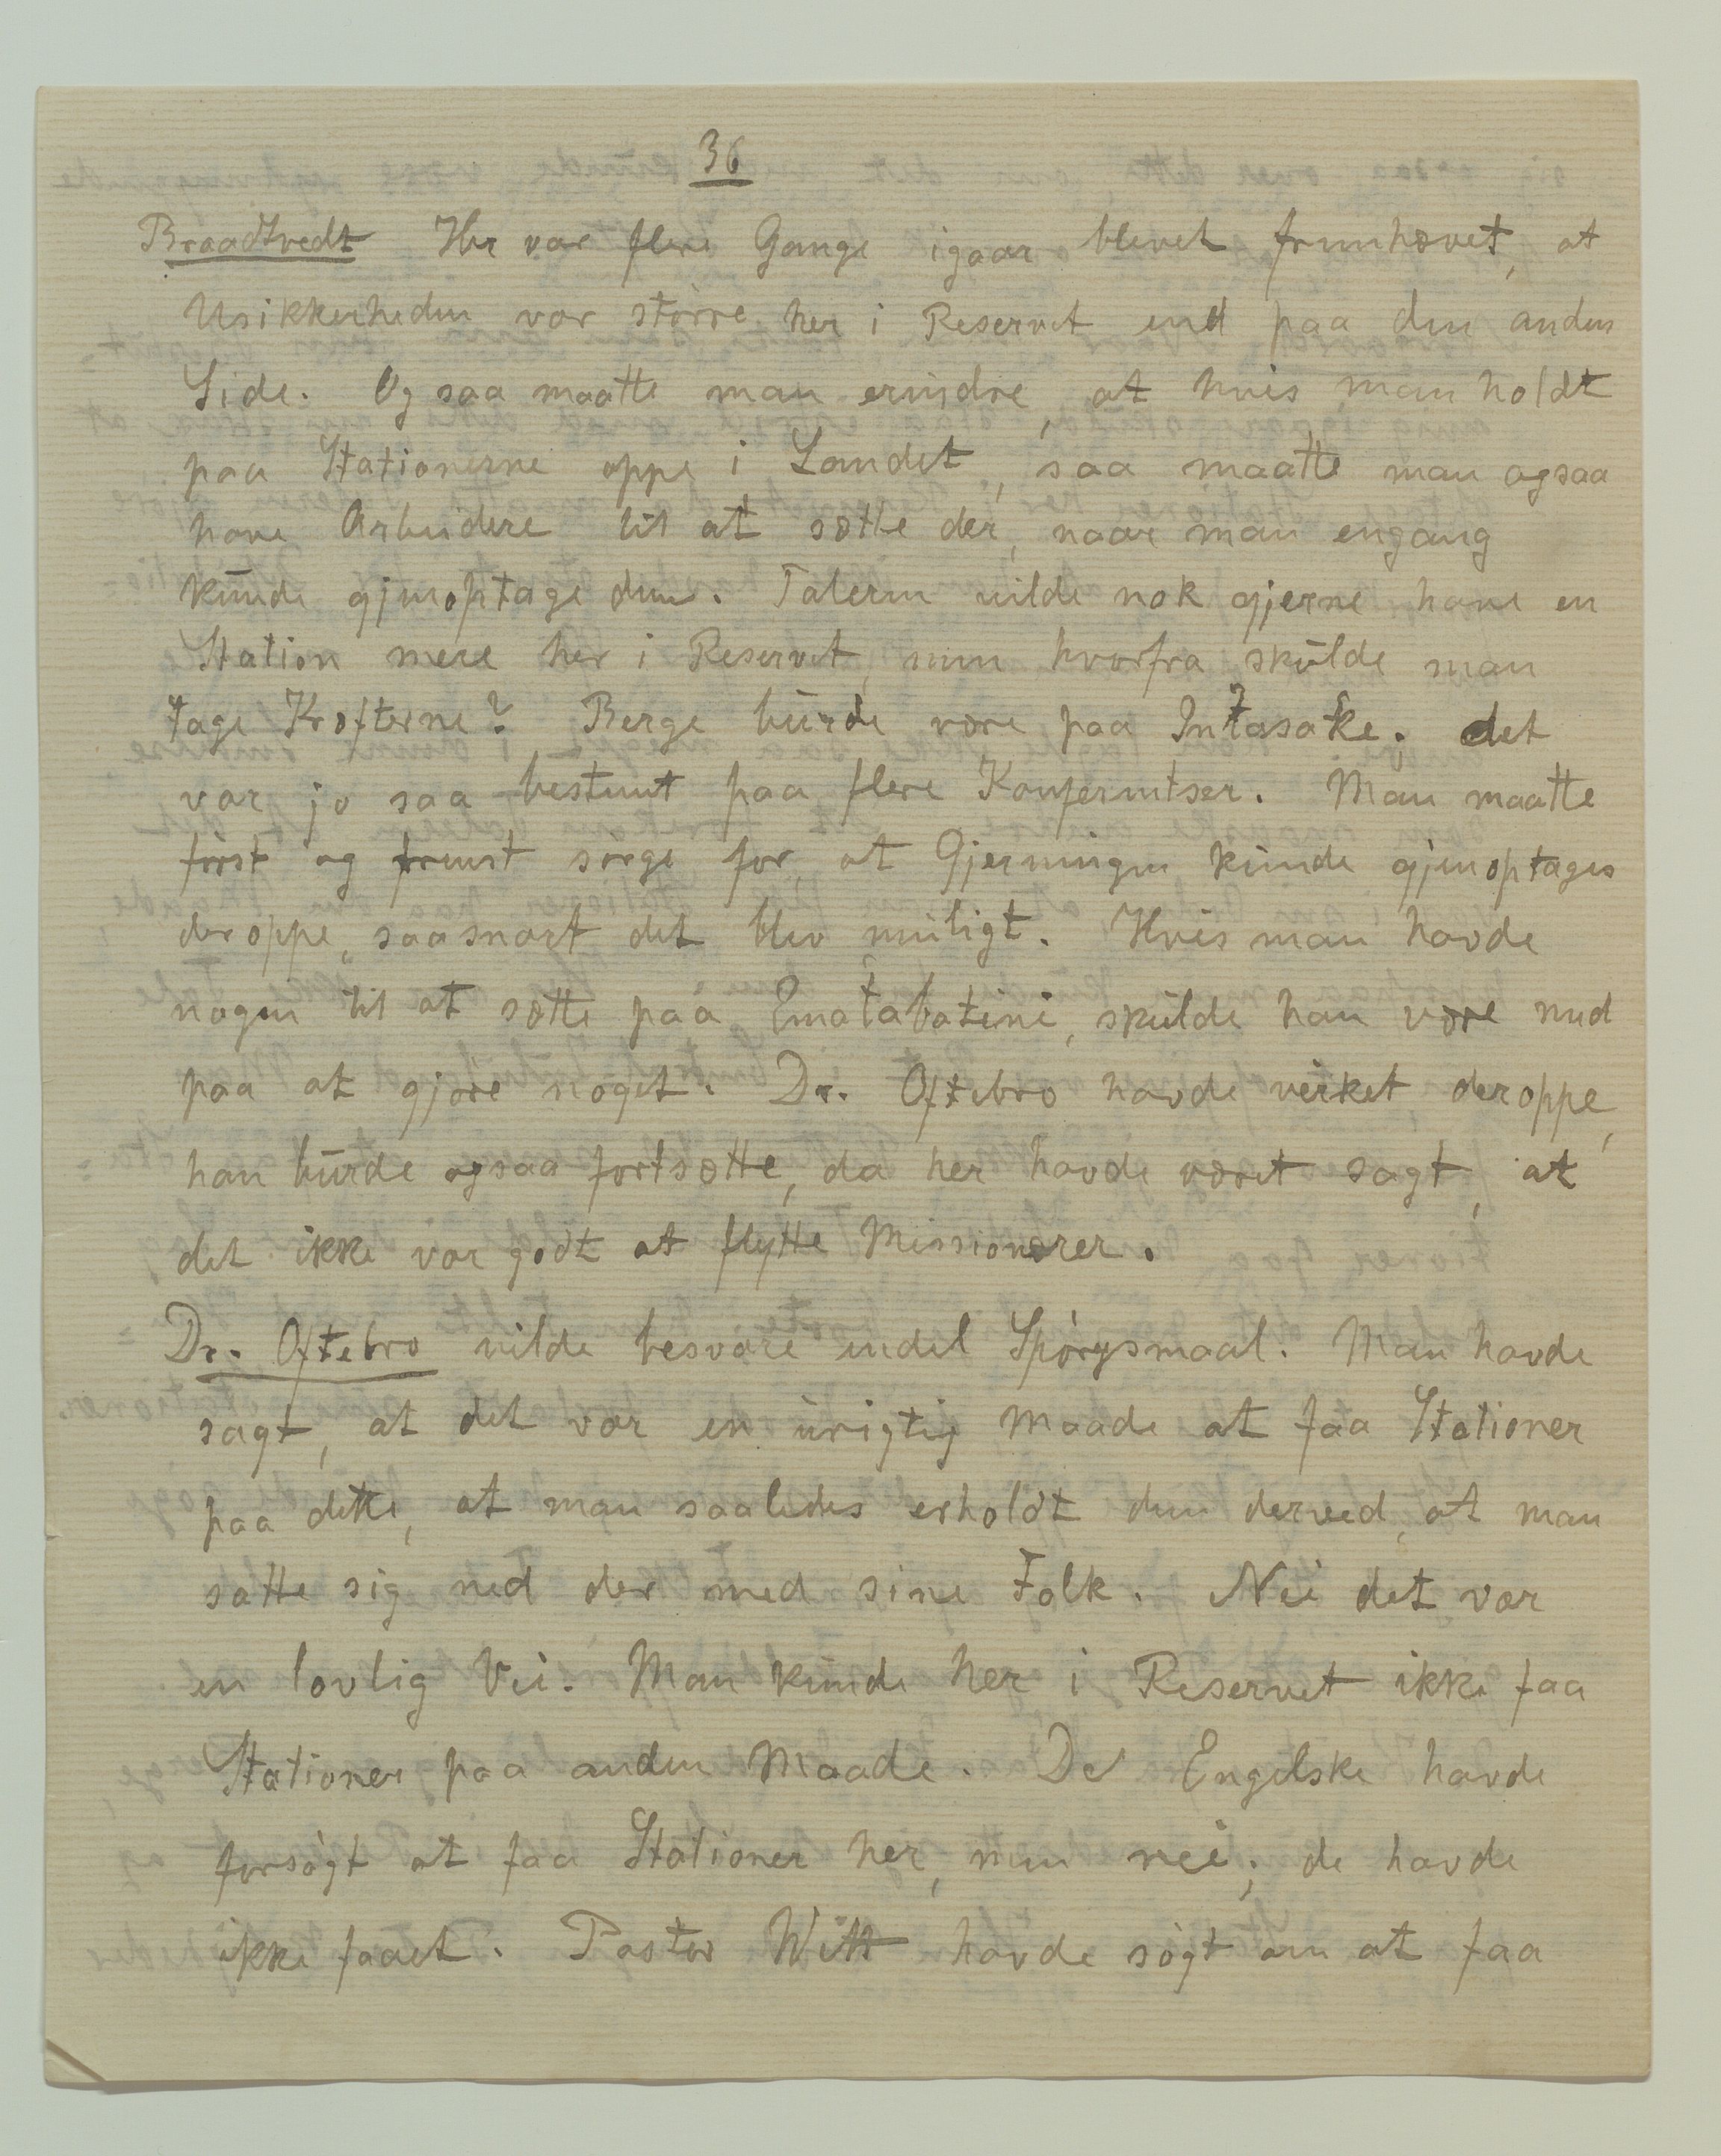 36
Braadtvedt Her var flere Gange igaar blevet fremhævet, at
Usikkerheden var større her i Reservet end paa den anden
Side. Og saa maatte man erindre, at hvis man holdt
paa Stationerne oppe i Landet, saa maatte man ogsaa
have Arbeidere til at sætte der, naar man engang
kunde gjenoptage dem. Taleren vilde nok gjerne have en
Station mere her i Reservet, men hvorfra skulde man
tage Kræfterne? Berge burde være paa Intasake; det
var jo saa bestemt paa flere Konferentser. Man maatte
først og fremst sørge for, at Gjerningen kunde gjenoptages
deroppe, saasnart det blev muligt. Hvis man havde
nogen til at sætte paa Ematabatini, skulde han være med
paa at gjøre noget. Dr. Oftebro havde virket deroppe,
han burde ogsaa fortsætte, da her havde været sagt, at
det ikke var godt at flytte Missionærer.
Dr. Oftebro vilde besvare endel Spørgsmaal. Man havde
sagt, at det var en urigtig Maade at faa Stationer
paa dette, at man saaledes erholdt dem derved, at man
satte sig ned der med sine Folk. Nei det var
en lovlig Vei. Man kunde her i Reservet ikke faa
Stationer paa anden Maade. De Engelske havde
forsøgt at faa Stationer her, men nei; de havde
ikke faaet. Pastor Witt havde søgt om at faa